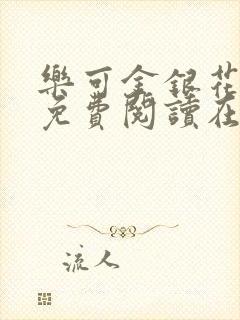 樂可金銀花
免費閱讀在
流人